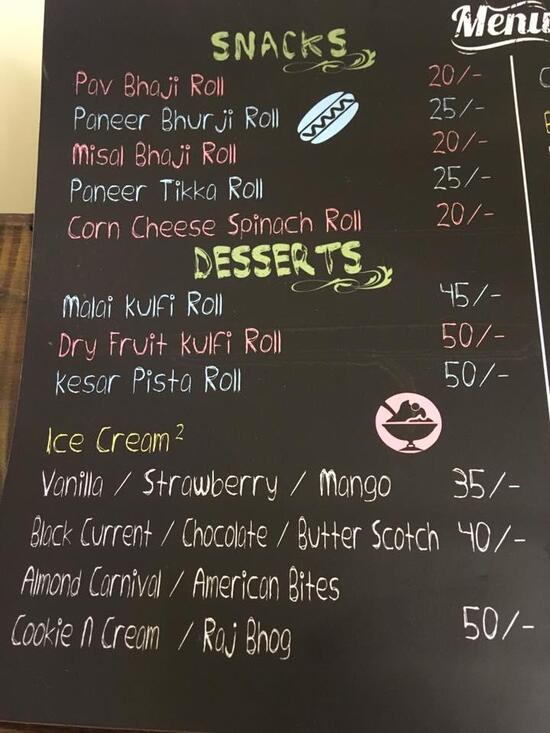 Menu
SNACKS
Pav Bhaji Roll 20/-
Paneer Bhurji Roll 25/-
Misal Bhaji Roll 20/-
Paneer Tikka Roll 25/-
Corn Cheese Spinach Roll 20/-
DESSERTS
Malai Kulfi Roll 45/-
Dry Fruit Kulfi Roll 50/-
Kesar Pista Roll 50/-
Ice Cream²
Vanilla / Strawberry / Mango 35/-
Black Current / Chocolate / Butter Scotch 40/-
Almond Carnival / American Bites
Cookie n Cream / Raj Bhog 50/-